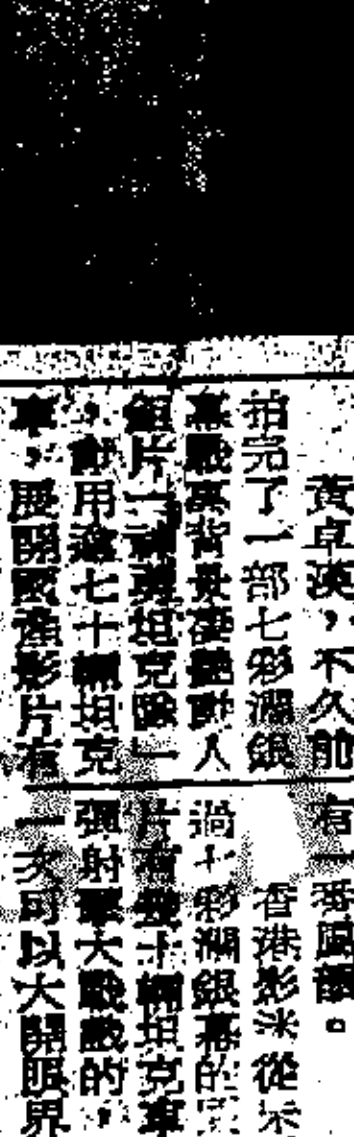 黃卓漢，不久前
拍完了一部七彩濶銀
幕戰爭背景凄艷動人
片「神勇坦克隊」
，動用逾七十輛坦克
車，展開國產影片有
有一番風韻。
香港影迷從未
過七彩濶銀幕的
片有數十輛坦克車
射擊大戰的，
一次可以大開眼界